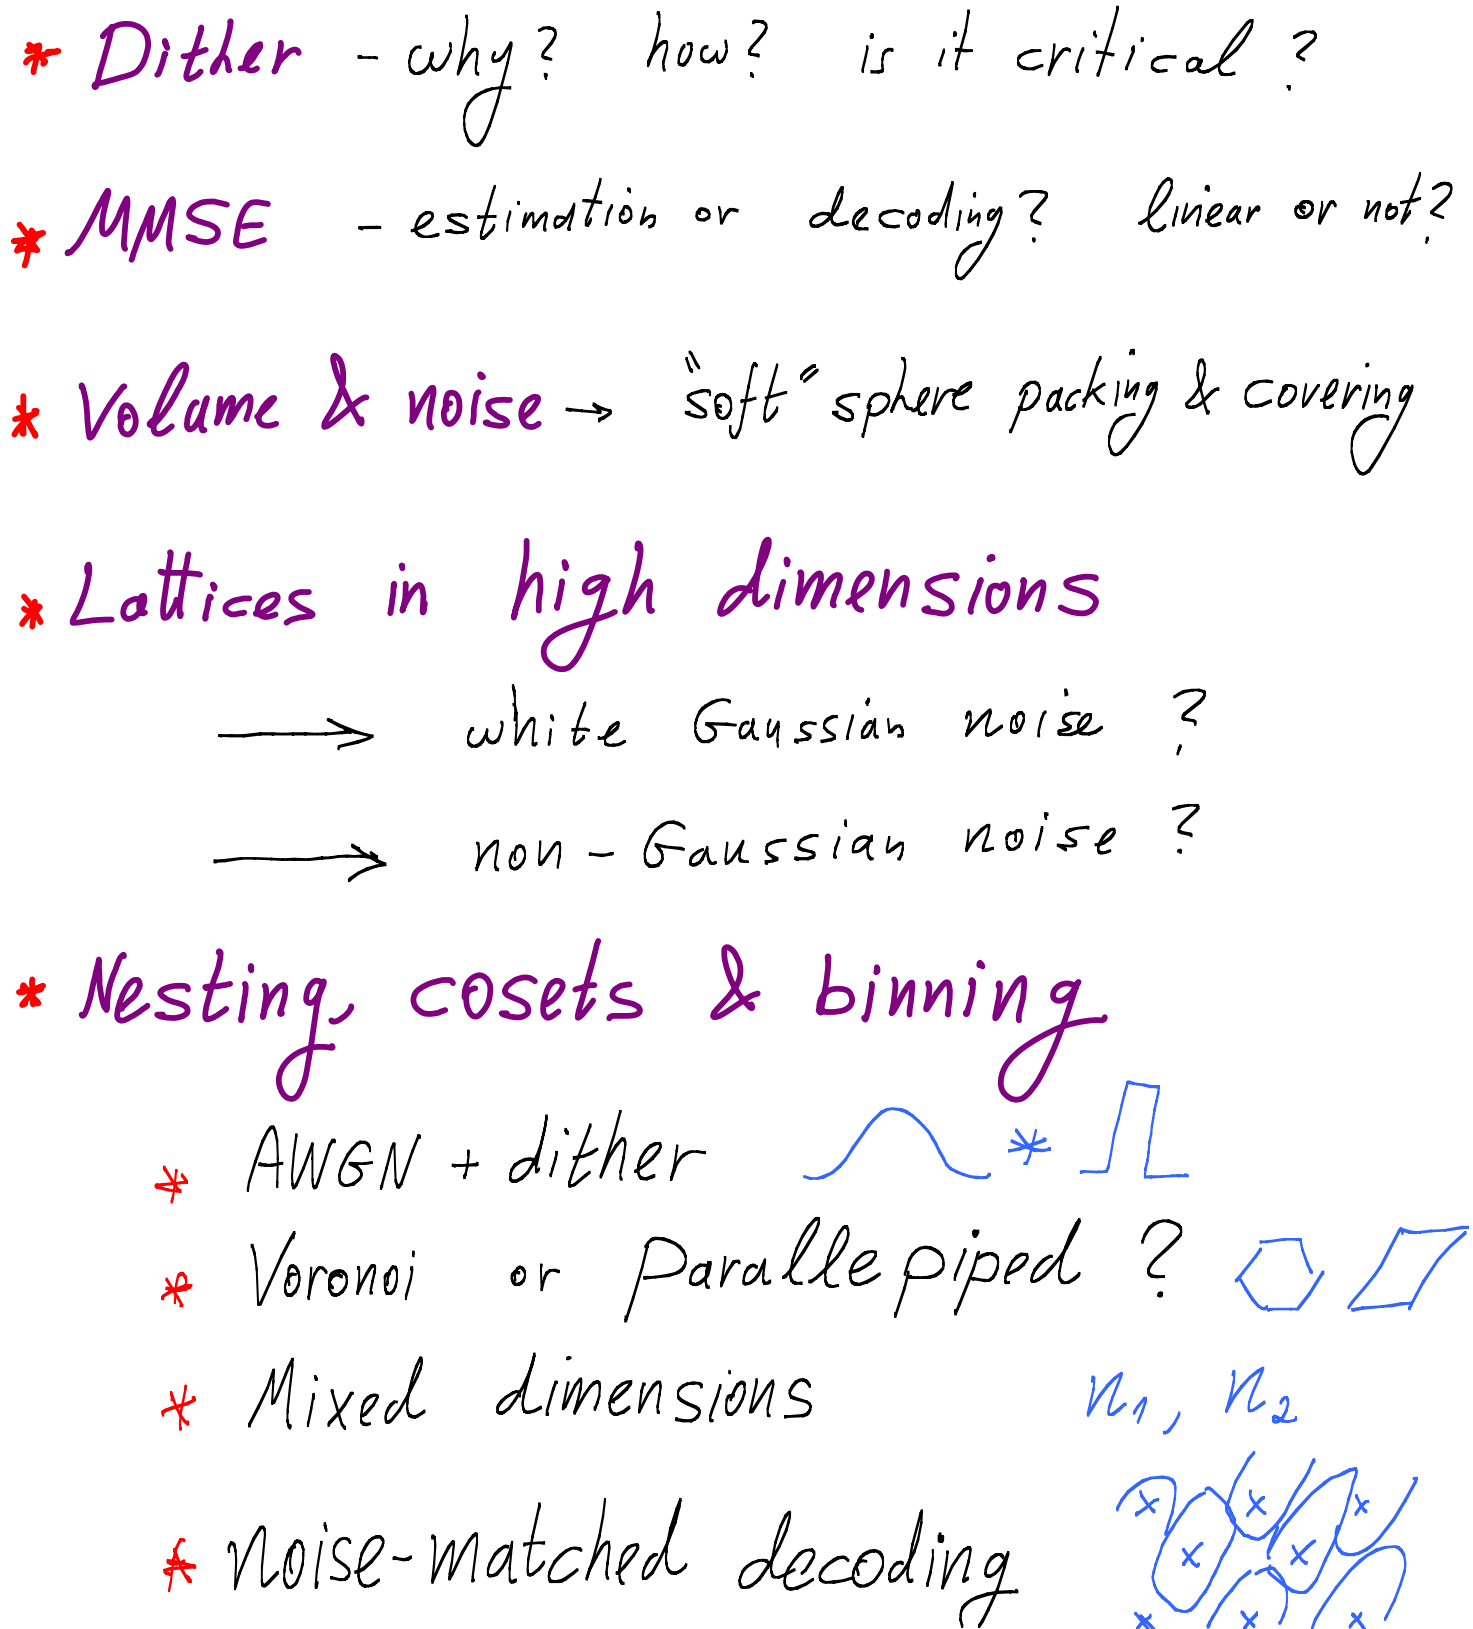 * Dither - why? how? is it critical?
* MMSE - estimation or decoding? linear or not?
* Volume & noise → "soft" sphere packing & covering
* Lattices in high dimensions
→ white Gaussian noise ?
→ non-Gaussian noise ?
* Nesting, cosets & binning
* AWGN + dither *
* Voronoi or Parallepiped ?
* Mixed dimensions n₁, n₂
* Noise-matched decoding